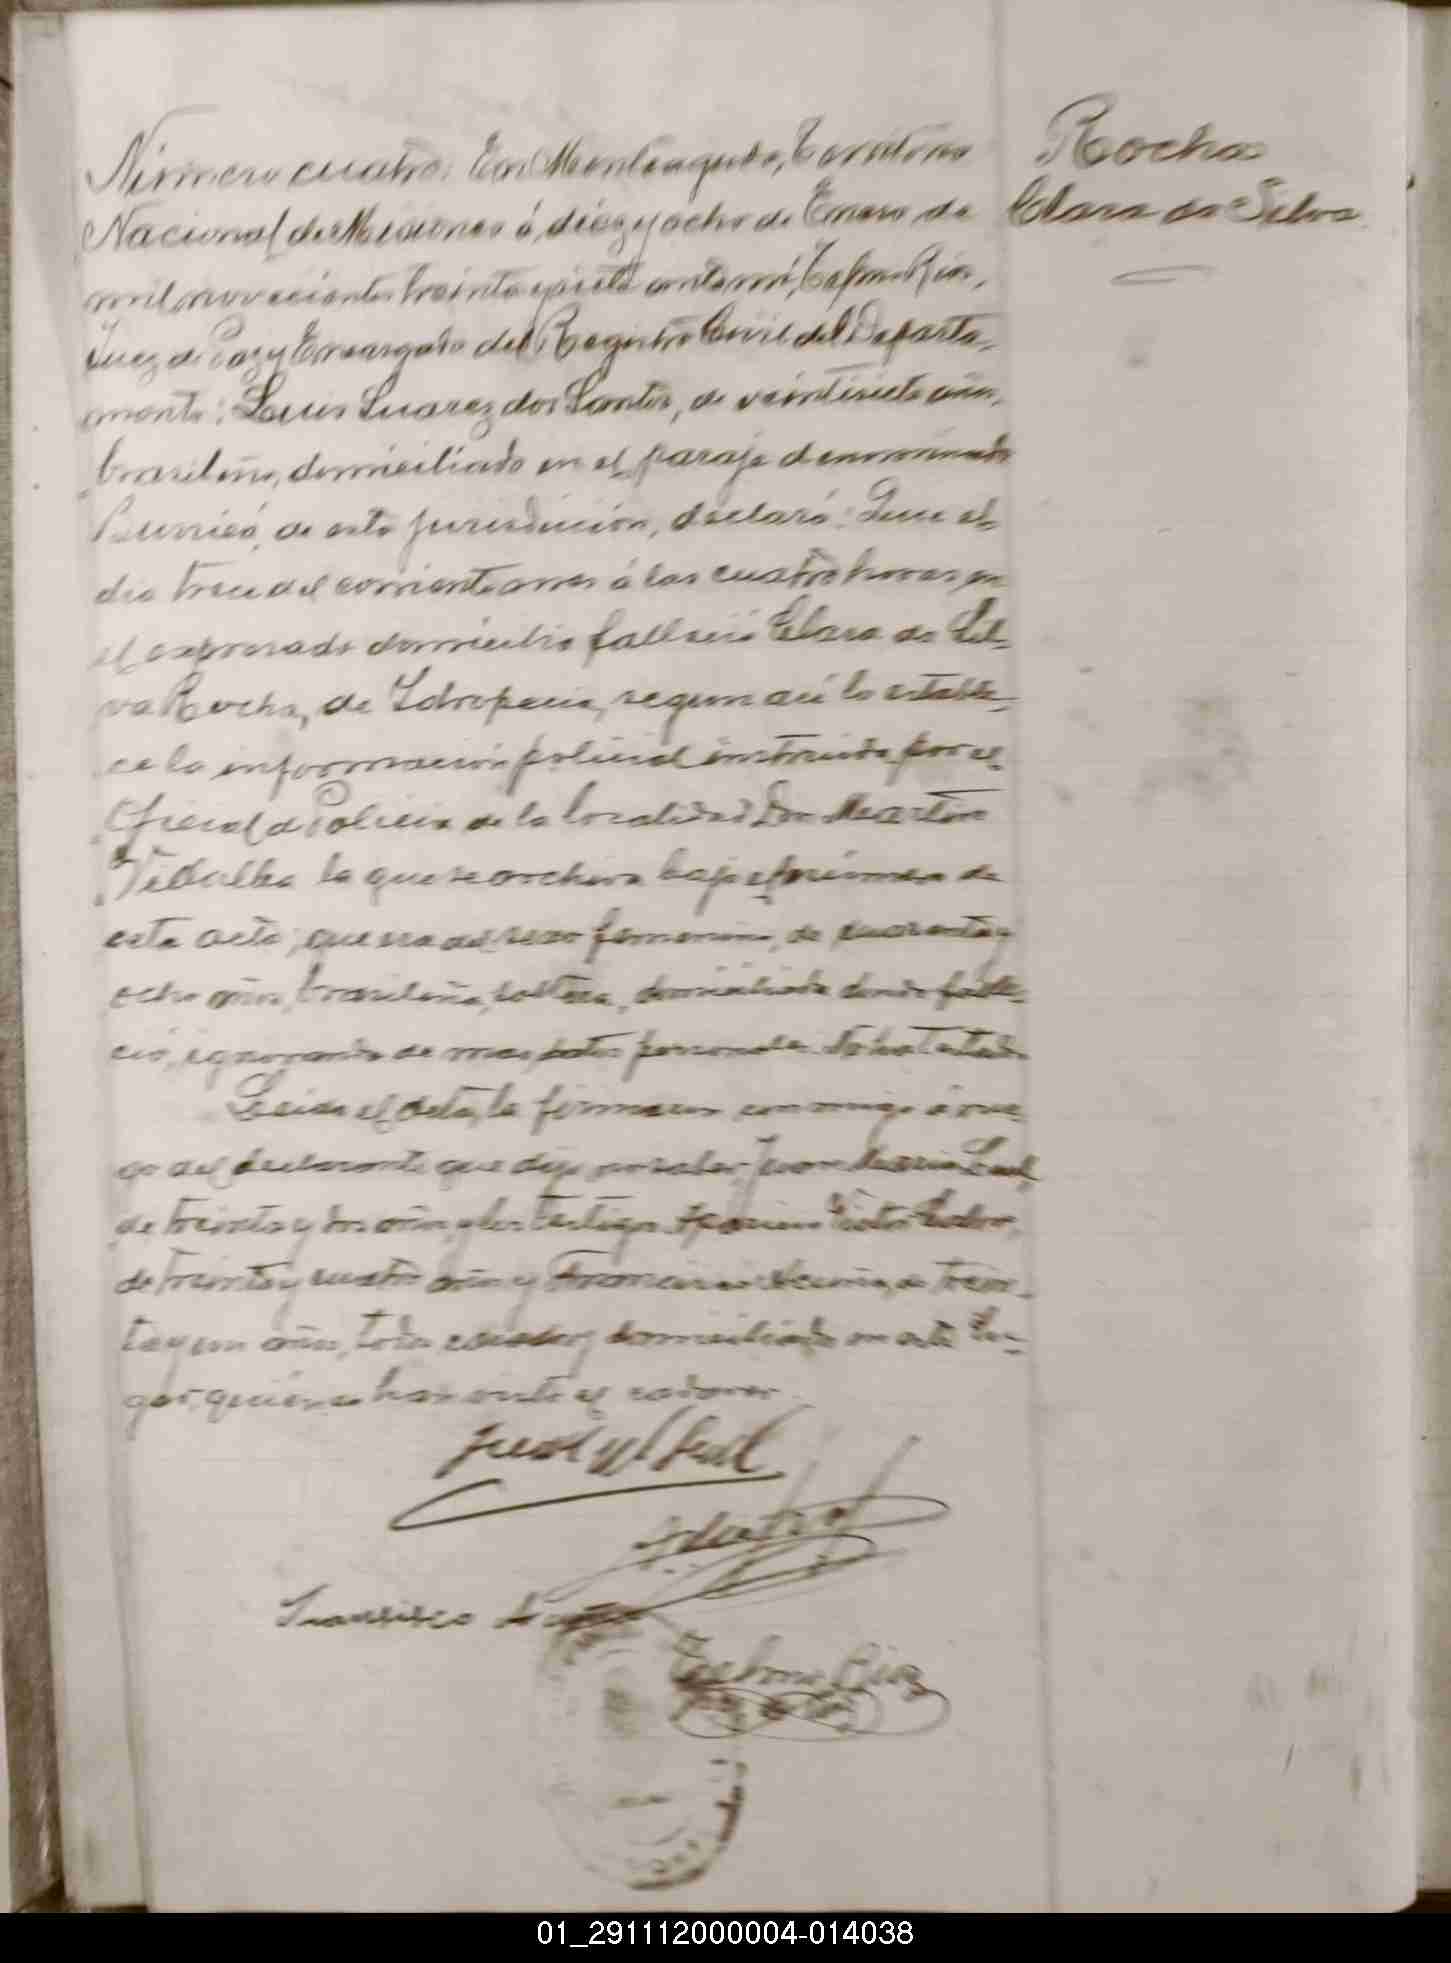 Rocha
Clara da Silva
Número cuatro: En Monteagudo, Territorio
Nacional de Misiones á diez y ocho de Enero de
mil novecientos treinta y siete ante mí, Telmo Rios,
Juez de Paz y Encargado del Registro Civil del Departa-
mento: Luis Suarez dos Santos, de veintisiete años,
brasileño, domiciliado en el paraje denominado
de esta jurisdicción, declaró: Que el
dia trece del corriente mes á las cuatro horas en
el expresado domicilio falleció Clara da Sil-
va Rocha, de Idropecia, segun así lo estable-
ce la información policial instruida por el
Oficial de Policia de la localidad Don Martin
Villalba la que se archiva bajo el número de
esta acta; que era del sexo femenino, de cuarenta y
ocho años, brasileña, soltera, domiciliada donde falle-
ció, ignorando de mas datos personales. No ha testado
Leida el acta, la firmaron conmigo á rue-
go del declarante que dijo no saber, Juan Maria
de treinta y dos años, y los testigos
de treinta y cuatro años y Francisco Acuña, de trein-
ta y un años, todos casados, domiciliados en este lu-
gar, quienes han visto el cadaver.
Francisco Acuña
Telmo Rios
01_291112000004-014038